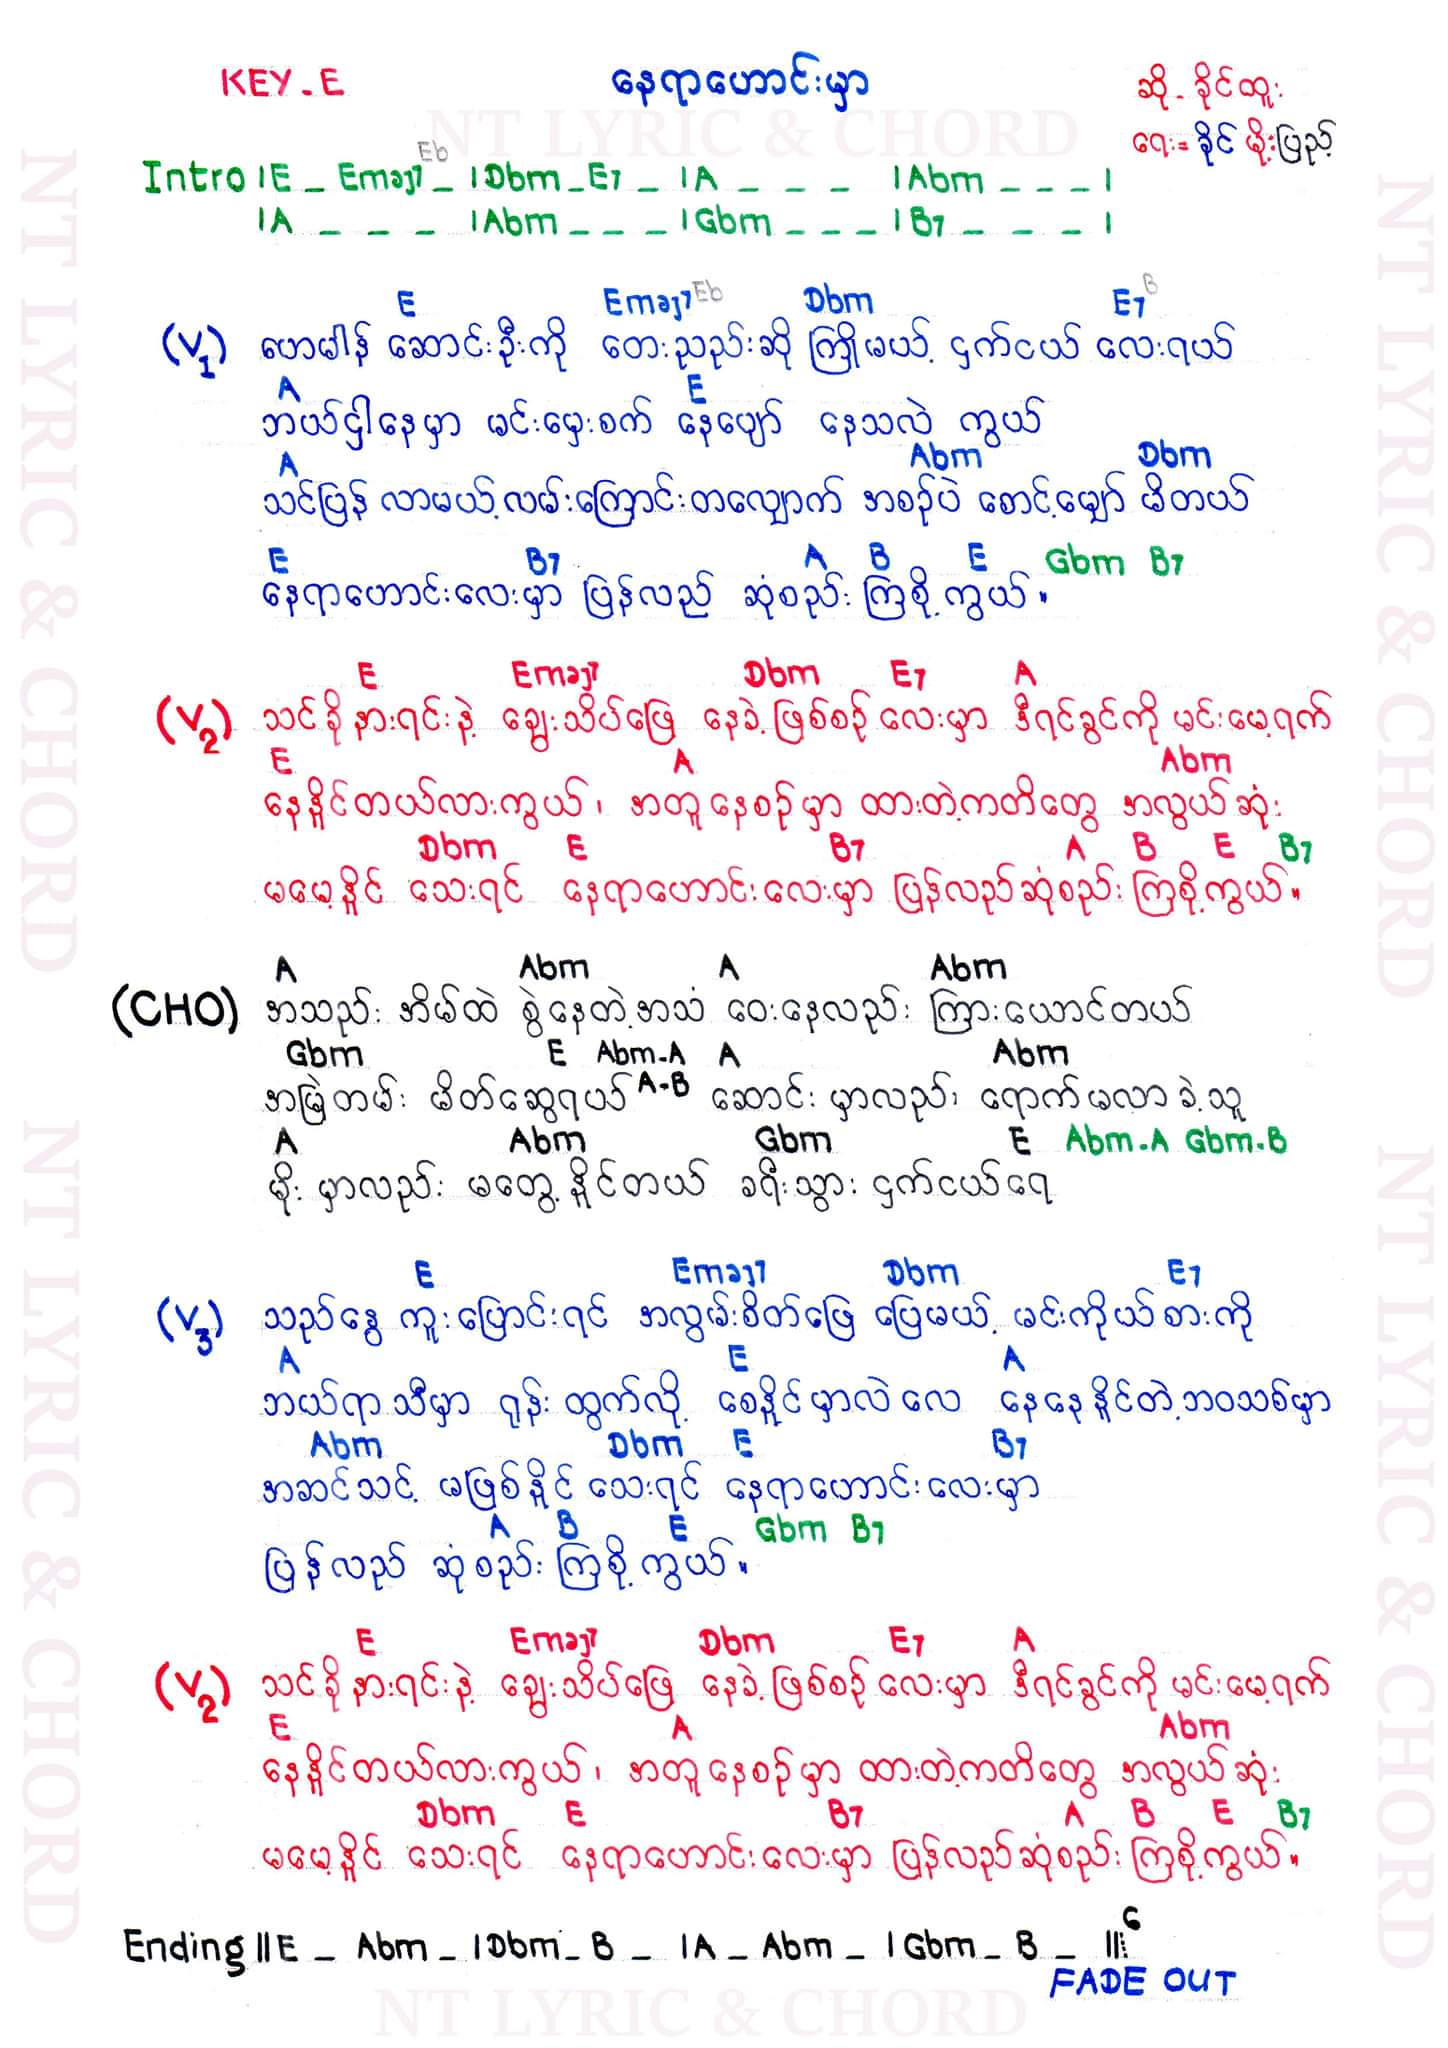 KEY-E
နေရာဟောင်းမှာ
ဆို - ခိုင်ထူး
ရေး = ခိုင် မိုးပြည့်
NT LYRIC & CHORD
Eb
Intro |E _ Emaj7 _ |Dbm _ E7 _ |A _ _ _ |Abm _ _ _ |
|A _ _ _ |Abm _ _ _ |Gbm _ _ _ |B7 _ _ _ |
E Emaj7 Eb Dbm E7 B
(V1) ဟေမာန် ဆောင်းဦးကို တေးညည်းဆို ကြိုမယ့် ငှက်ငယ် လေးရယ်
A E
ဘယ်ဌါနေမှာ မင်းမှေးစက် နေပျော် နေသလဲ ကွယ်
A Abm Dbm
သင်ပြန် လာမယ့်လမ်းကြောင်းတလျှောက် အစဉ်ပဲ စောင့်မျှော် မိတယ်
E B7 A B E Gbm B7
နေရာဟောင်းလေးမှာ ပြန်လည် ဆုံစည်း ကြစို့ကွယ်။
E Emaj7 Dbm E7 A
(V2) သင်ခို နားရင်းနဲ့ ချွေးသိပ်ဖြေ နေခဲ့ဖြစ်စဉ် လေးမှာ ဒီရင်ခွင်ကို မင်းမေ့ရက်
E A Abm
နေနိူင်တယ်လားကွယ်၊ အတူနေစဉ်မှာ ထားတဲ့ကတိတွေ အလွယ်ဆုံး
Dbm E B7 A B E B7
မမေ့နိူင် သေးရင် နေရာဟောင်းလေးမှာ ပြန်လည်ဆုံစည်း ကြစို့ကွယ်။
A Abm A Abm
(CHO) အသည်း အိမ်ထဲ စွဲနေတဲ့အသံ ဝေးနေလည်း ကြားယောင်တယ်
Gbm E Abm-A A Abm
အမြဲတမ်း မိတ်ဆွေရယ် A-B ဆောင်း မှာလည်း ရောက်မလာခဲ့သူ
A Abm Gbm E Abm-A Gbm-B
မိုး မှာလည်း မတွေ့နိူင်တယ် ခရီးသွား ငှက်ငယ်ရေ
E Emaj7 Dbm E7
(V3) သည်နွေ ကူးပြောင်းရင် အလွမ်းစိတ်ဖြေ ပြေမယ့် မင်းကိုယ်စားကို
A E A
ဘယ်ရာသီမှာ ရုန်းထွက်လို့ စေနိူင်မှာလဲလေ နေနေနိူင်တဲ့ဘဝသစ်မှာ
Abm Dbm E B7
အဆင်သင့် မဖြစ်နိူင် သေးရင် နေရာဟောင်းလေးမှာ
A B E Gbm B7
ပြန်လည် ဆုံစည်း ကြစို့ကွယ်။
E Emaj7 Dbm E7 A
(V2) သင်ခို နားရင်းနဲ့ ချွေးသိပ်ဖြေ နေခဲ့ဖြစ်စဉ် လေးမှာ ဒီရင်ခွင်ကို မင်းမေ့ရက်
E A Abm
နေနိူင်တယ်လားကွယ်၊ အတူနေစဉ်မှာ ထားတဲ့ကတိတွေ အလွယ်ဆုံး
Dbm E B7 A B E B7
မမေ့နိူင် သေးရင် နေရာဟောင်းလေးမှာ ပြန်လည်ဆုံစည်း ကြစို့ကွယ်။
Ending ||E _ Abm _ |Dbm _ B _ |A _ Abm _ |Gbm _ B _ ||: 6
FADE OUT
NT LYRIC & CHORD
NT LYRIC & CHORD
NT LYRIC & CHORD
NT LYRIC & CHORD
NT LYRIC & CHORD